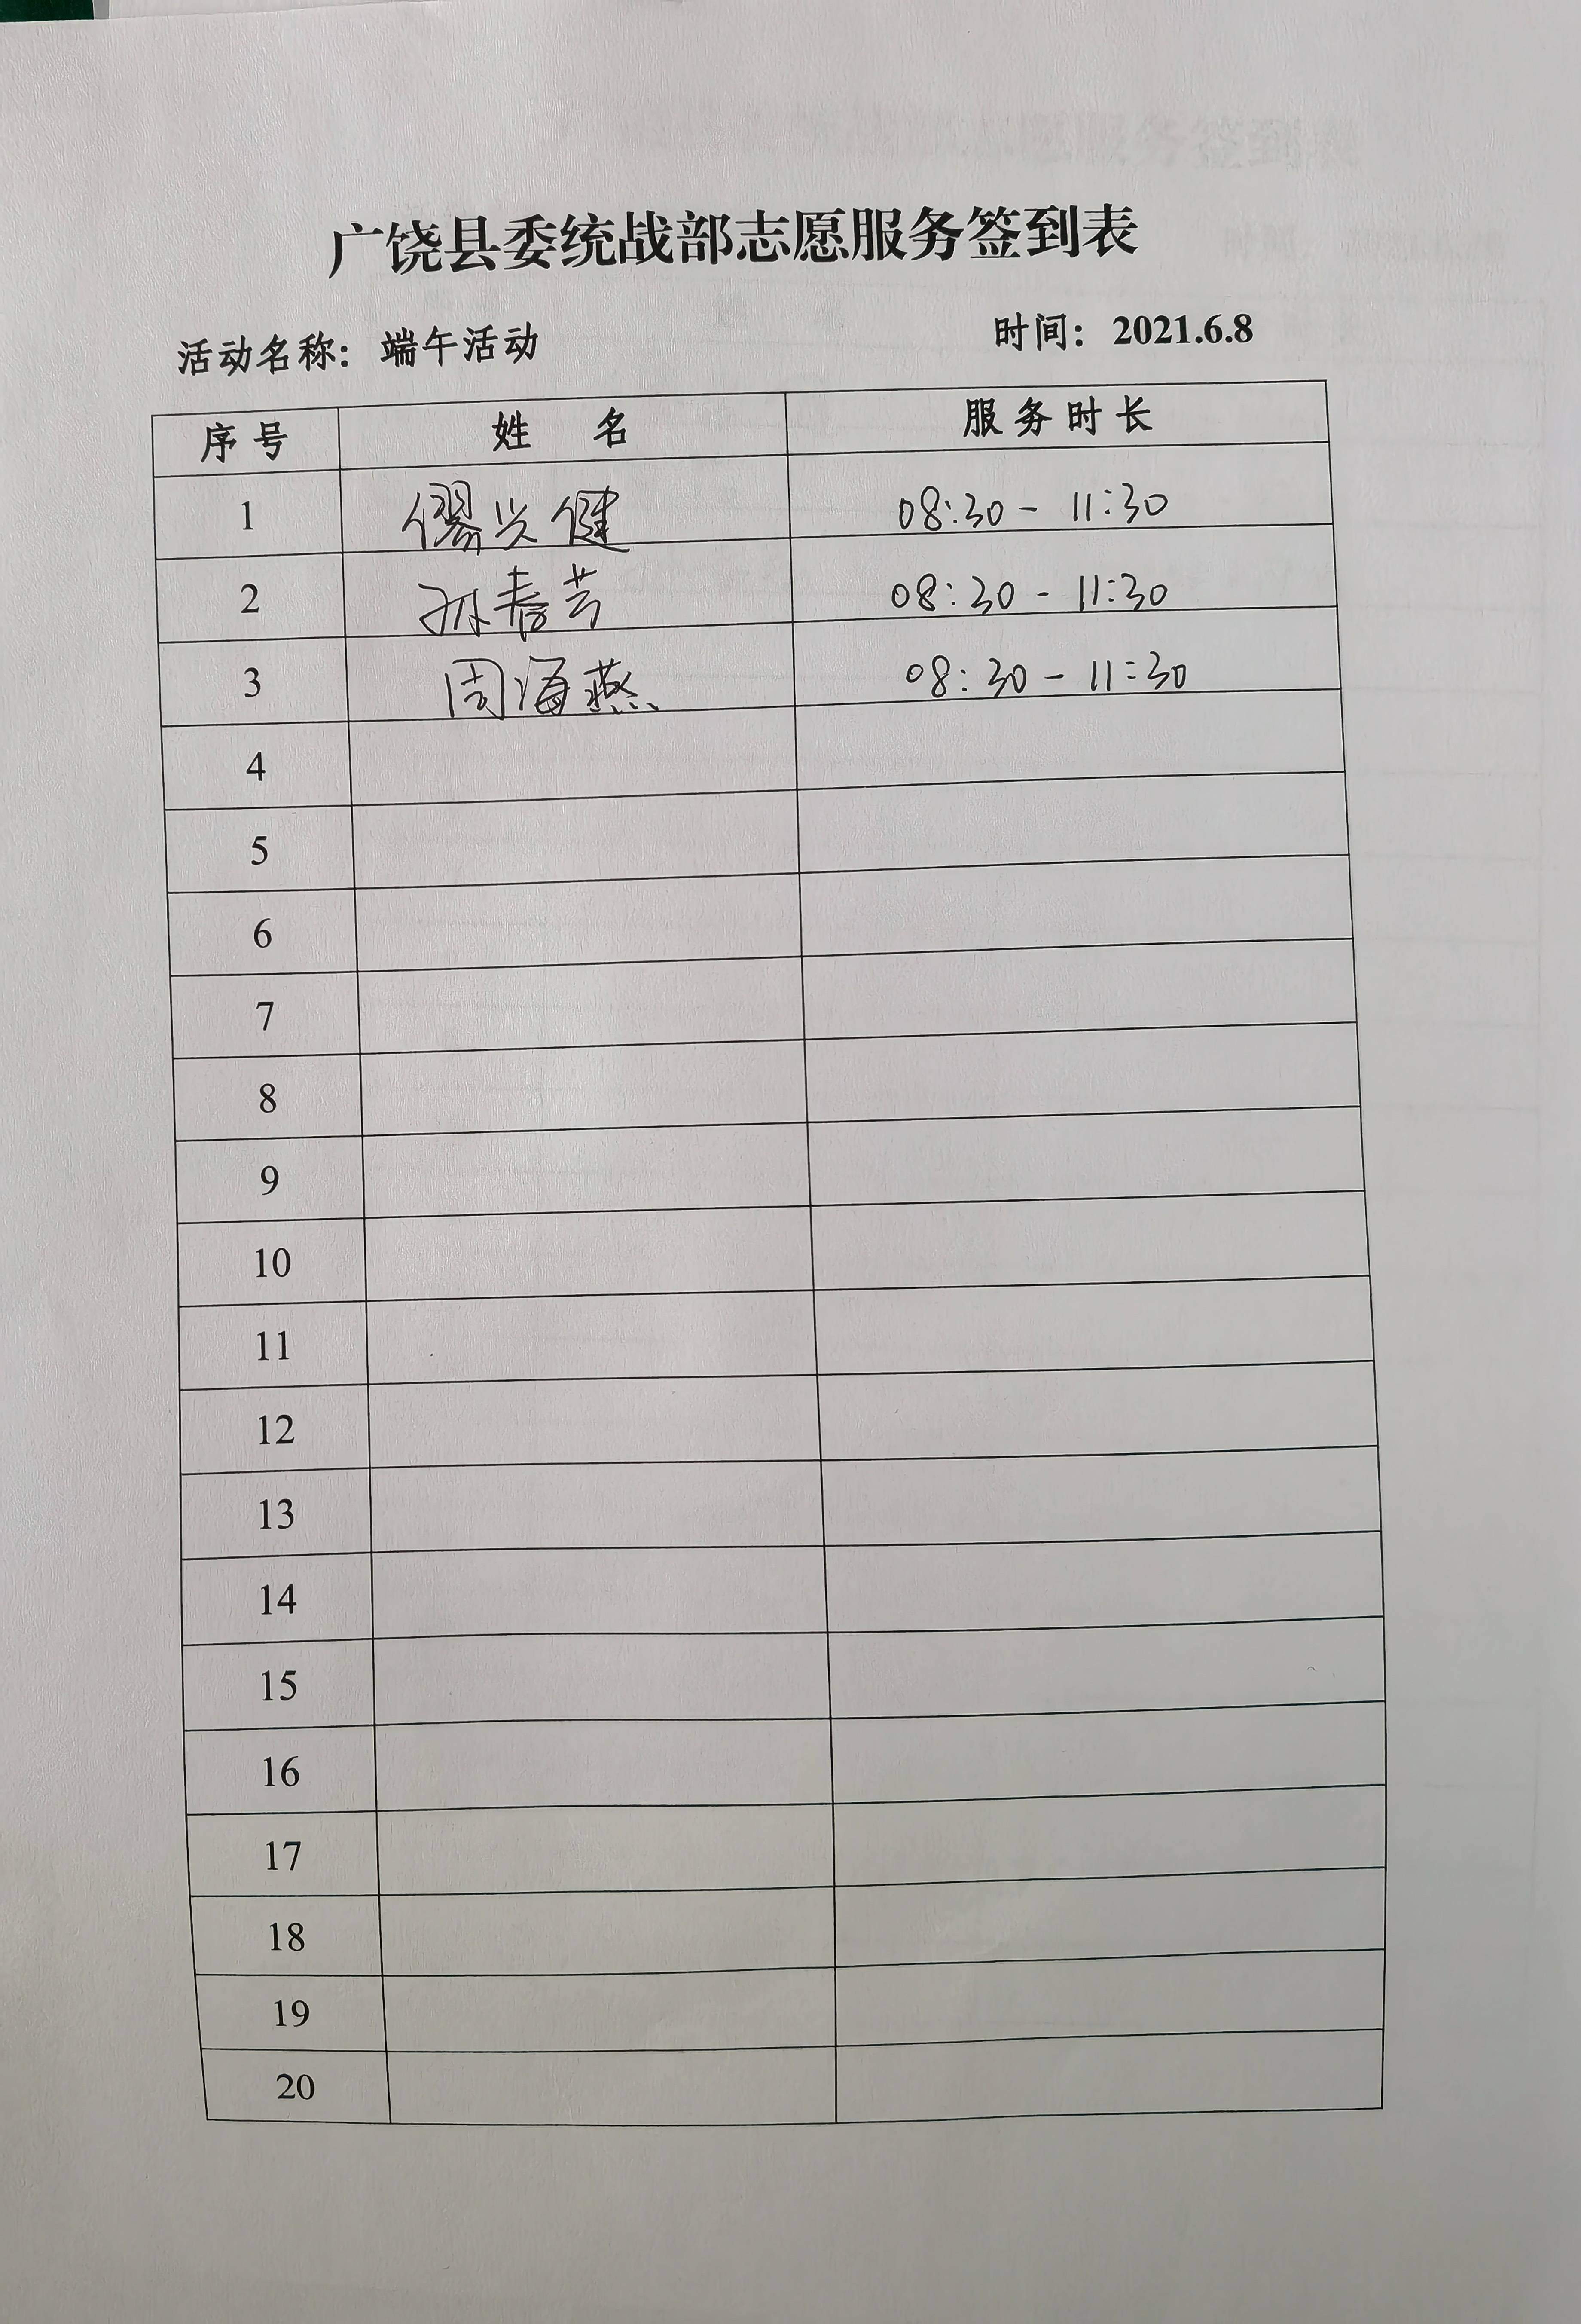 广饶县委统战部志愿服务签到表
活动名称：端午活动 时间：2021.6.8
序号 姓 名 服务时长
1 缪兴健 08:30-11:30
2 孙春芳 08:30-11:30
3 周海燕 08:30-11:30
4
5
6
7
8
9
10
11
12
13
14
15
16
17
18
19
20